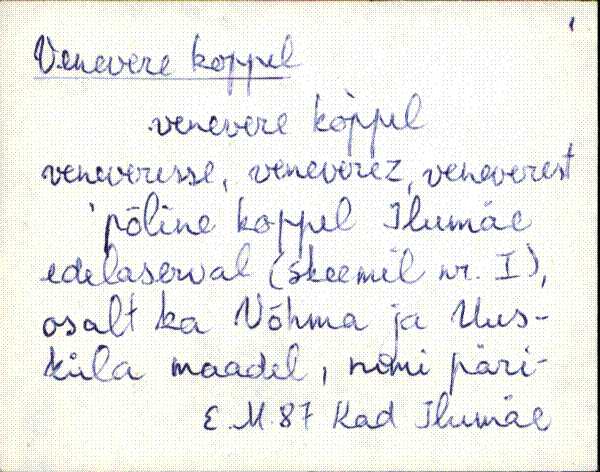 1
Venevere koppel
venevere kop̀pel
veneveresse, veneverez, veneverest
'põline koppel Ilumäe
edelaserval (skeemil nr. I),
osalt ka Võhma ja Uus-
küla maadel, nimi päri-
E.M. 87 Kad Ilumäe